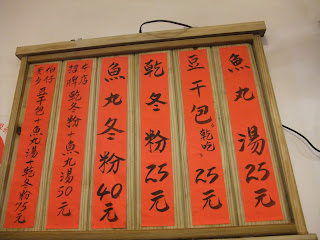 魚丸湯25元
豆干包乾吃25元
乾冬粉25元
魚丸冬粉40元
招牌乾冬粉+魚丸湯50元
豆干包+魚丸湯+乾冬粉75元